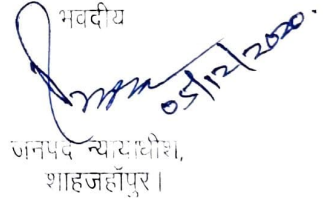 भवदीय
05/12/2020.
जनपद न्यायाधीश,
शाहजहॉपुर।